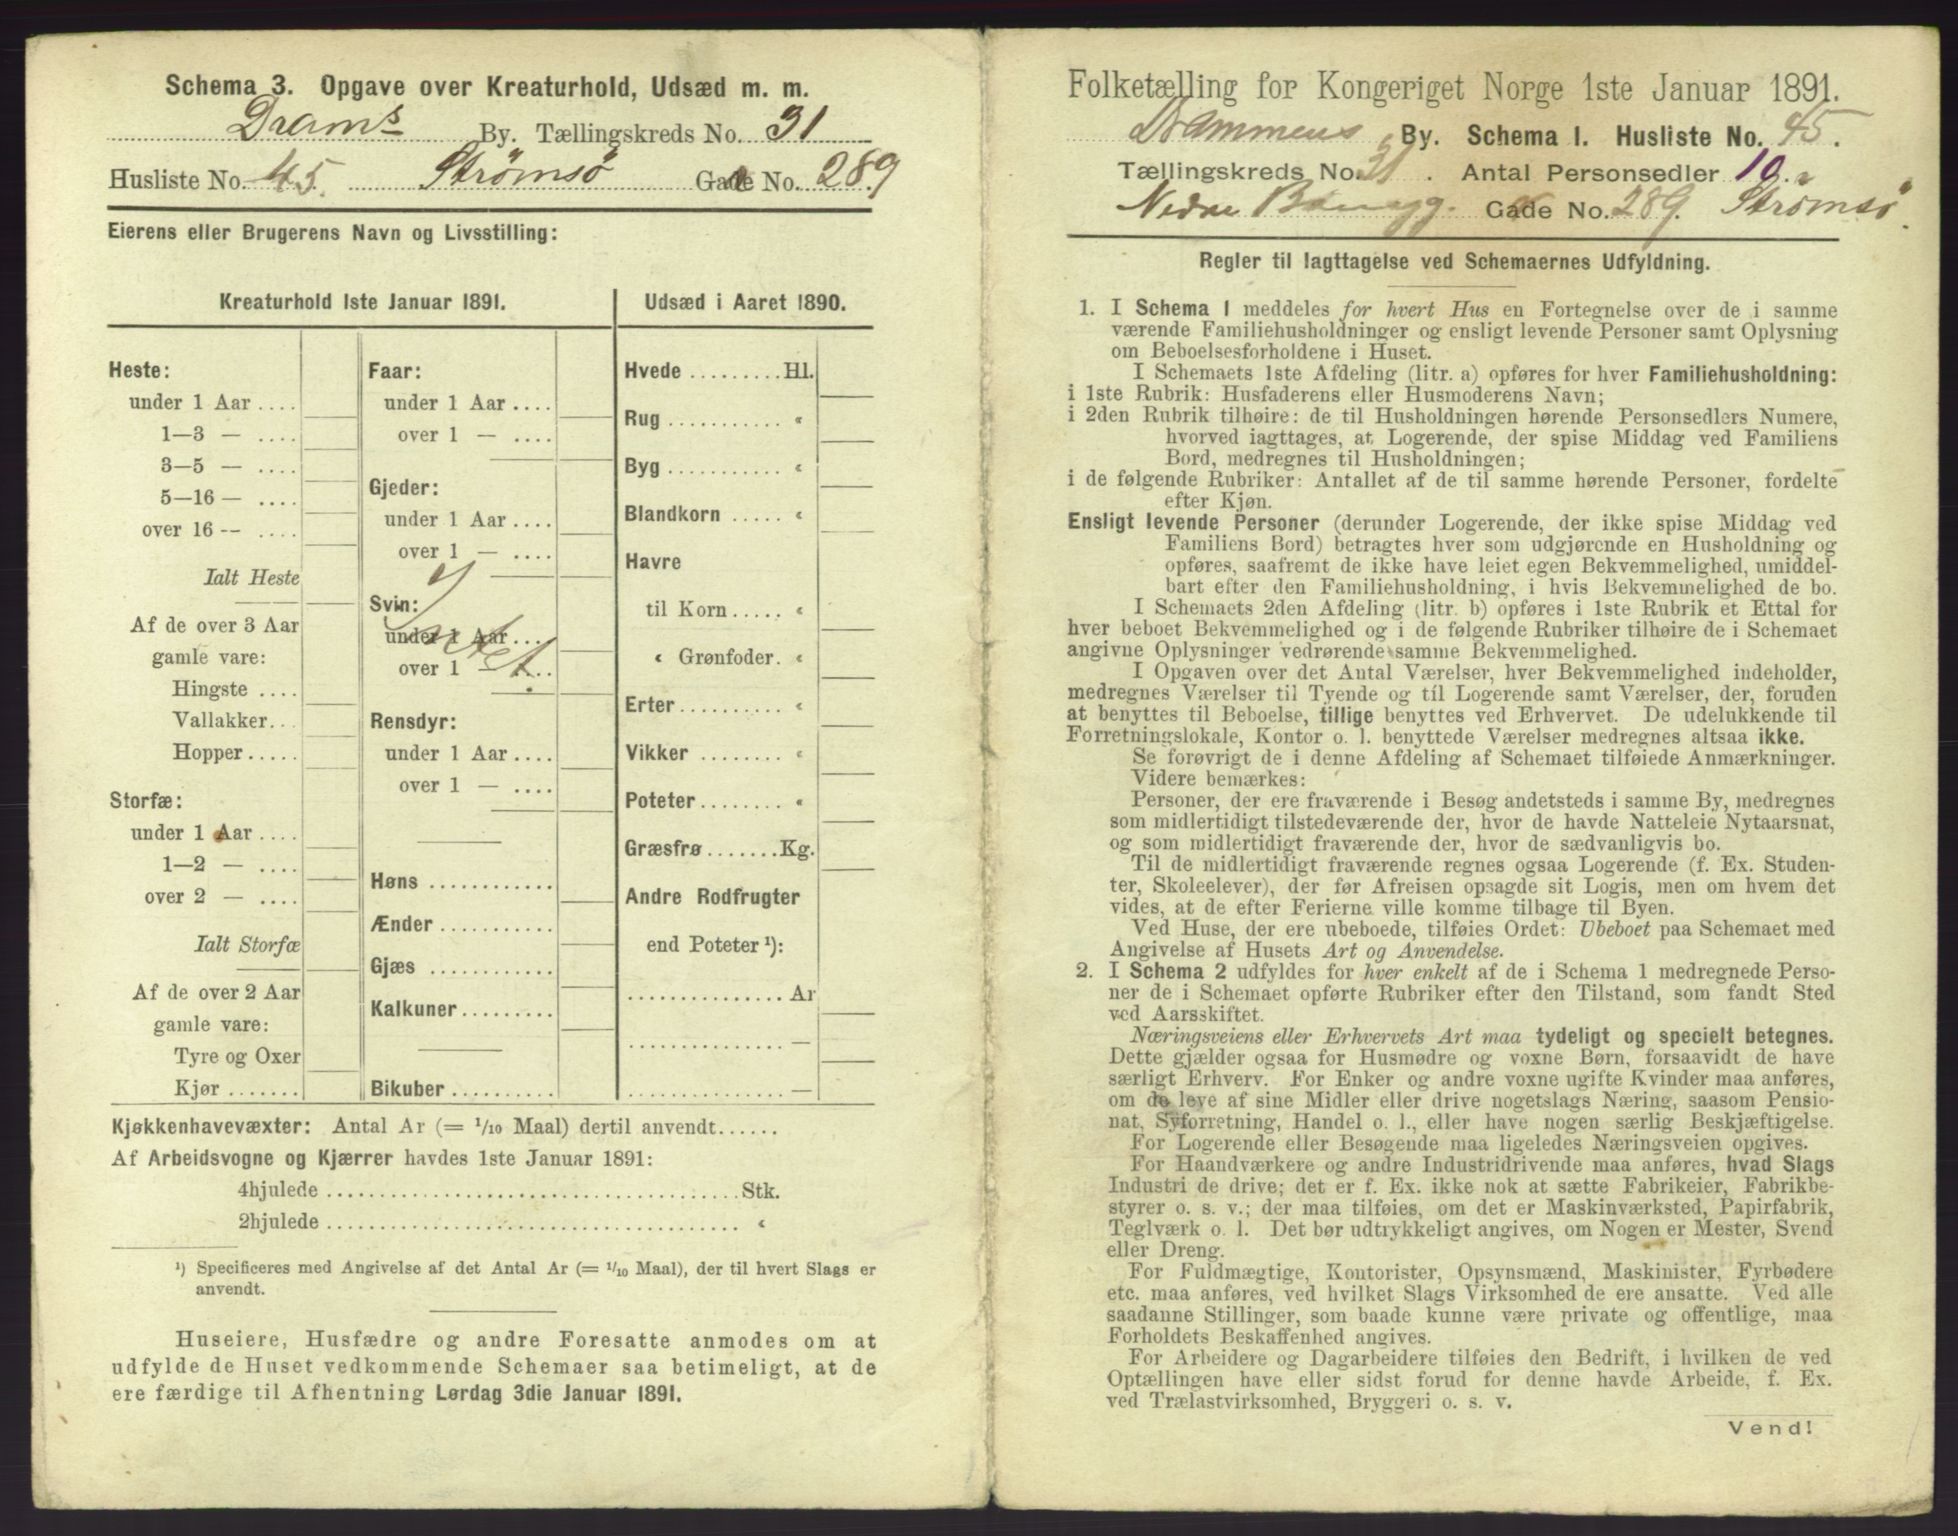 Schema 3. Opgave over Kreaturhold, Udsæd m. m.
Dram<sup>s</sup> By. Tællingskreds No. 31
Husliste No. 45. Strømsø Gade No. 289
Eierens eller Brugerens Navn og Livsstilling:
Kreaturhold 1ste Januar 1891.
Heste:
under 1 Aar ....
1—3 — ....
3—5 — ....
5—16 — ....
over 16 — ....
Ialt Heste
Af de over 3 Aar
gamle vare:
Hingste ....
Vallakker...
Hopper.....
Storfæ:
under 1 Aar ....
1—2 — ....
over 2 — ....
Ialt Storfæ
Af de over 2 Aar
gamle vare:
Tyre og Oxer
Kjør .......
Faar:
under 1 Aar ....
over 1 — ....
Gjeder:
under 1 Aar ....
over 1 — ....
Svin:
under 1 Aar ....
over 1 — ....
Intet.
Rensdyr:
under 1 Aar ....
over 1 — ....
Høns ............
Ænder ...........
Gjæs ............
Kalkuner.........
Bikuber ..........
Udsæd i Aaret 1890.
Hvede .........Hl.
Rug ........... «
Byg ........... «
Blandkorn ..... «
Havre
til Korn ..... «
« Grønfoder. «
Erter.......... «
Vikker ........ «
Poteter........ «
Græsfrø .......Kg.
Andre Rodfrugter
end Poteter ¹):
...............Ar
............... —
............... —
Kjøkkenhavevæxter: Antal Ar (= 1/10 Maal) dertil anvendt......
Af Arbeidsvogne og Kjærrer havdes 1ste Januar 1891:
4hjulede ........................................Stk.
2hjulede ........................................ «
¹) Specificeres med Angivelse af det Antal Ar (= 1/10 Maal), der til hvert Slags er
anvendt.
Huseiere, Husfædre og andre Foresatte anmodes om at
udfylde de Huset vedkommende Schemaer saa betimeligt, at de
ere færdige til Afhentning Lørdag 3die Januar 1891.
Folketælling for Kongeriget Norge 1ste Januar 1891.
Drammens By. Schema I. Husliste No. 45.
Tællingskreds No. 31. Antal Personsedler 10.
Nedre Gade No. 289. Strømsø.
Regler til Iagttagelse ved Schemaernes Udfyldning.
1. I Schema I meddeles for hvert Hus en Fortegnelse over de i samme
værende Familiehusholdninger og ensligt levende Personer samt Oplysning
om Beboelsesforholdene i Huset.
I Schemaets 1ste Afdeling (litr. a) opføres for hver Familiehusholdning:
i 1ste Rubrik: Husfaderens eller Husmoderens Navn;
i 2den Rubrik tilhøire: de til Husholdningen hørende Personsedlers Numere,
hvorved iagttages, at Logerende, der spise Middag ved Familiens
Bord, medregnes til Husholdningen;
i de følgende Rubriker: Antallet af de til samme hørende Personer, fordelte
efter Kjøn.
Ensligt levende Personer (derunder Logerende, der ikke spise Middag ved
Familiens Bord) betragtes hver som udgjørende en Husholdning og
opføres, saafremt de ikke have leiet egen Bekvemmelighed, umiddel-
bart efter den Familiehusholdning, i hvis Bekvemmelighed de bo.
I Schemaets 2den Afdeling (litr. b) opføres i 1ste Rubrik et Ettal for
hver beboet Bekvemmelighed og i de følgende Rubriker tilhøire de i Schemaet
angivne Oplysninger vedrørende samme Bekvemmelighed.
I Opgaven over det Antal Værelser, hver Bekvemmelighed indeholder,
medregnes Værelser til Tyende og til Logerende samt Værelser, der, foruden
at benyttes til Beboelse, tillige benyttes ved Erhvervet. De udelukkende til
Forretningslokale, Kontor o. l. benyttede Værelser medregnes altsaa ikke.
Se forøvrigt de i denne Afdeling af Schemaet tilføiede Anmærkninger.
Videre bemærkes:
Personer, der ere fraværende i Besøg andetsteds i samme By, medregnes
som midlertidigt tilstedeværende der, hvor de havde Natteleie Nytaarsnat,
og som midlertidigt fraværende der, hvor de sædvanligvis bo.
Til de midlertidigt fraværende regnes ogsaa Logerende (f. Ex. Studen-
ter, Skoleelever), der før Afreisen opsagde sit Logis, men om hvem det
vides, at de efter Ferierne ville komme tilbage til Byen.
Ved Huse, der ere ubeboede, tilføies Ordet: Ubeboet paa Schemaet med
Angivelse af Husets Art og Anvendelse.
2. I Schema 2 udfyldes for hver enkelt af de i Schema 1 medregnede Perso-
ner de i Schemaet opførte Rubriker efter den Tilstand, som fandt Sted
ved Aarsskiftet.
Næringsveiens eller Erhvervets Art maa tydeligt og specielt betegnes.
Dette gjælder ogsaa for Husmødre og voxne Børn, forsaavidt de have
særligt Erhverv. For Enker og andre voxne ugifte Kvinder maa anføres,
om de leve af sine Midler eller drive nogetslags Næring, saasom Pensio-
nat, Syforretning, Handel o. l., eller have nogen særlig Beskjæftigelse.
For Logerende eller Besøgende maa ligeledes Næringsveien opgives.
For Haandværkere og andre Industridrivende maa anføres, hvad Slags
Industri de drive; det er f. Ex. ikke nok at sætte Fabrikeier, Fabrikbe-
styrer o. s. v.; der maa tilføies, om det er Maskinværksted, Papirfabrik,
Teglværk o. l. Det bør udtrykkeligt angives, om Nogen er Mester, Svend
eller Dreng.
For Fuldmægtige, Kontorister, Opsynsmænd, Maskinister, Fyrbødere
etc. maa anføres, ved hvilket Slags Virksomhed de ere ansatte. Ved alle
saadanne Stillinger, som baade kunne være private og offentlige, maa
Forholdets Beskaffenhed angives.
For Arbeidere og Dagarbeidere tilføies den Bedrift, i hvilken de ved
Optællingen have eller sidst forud for denne havde Arbeide, f. Ex.
ved Trælastvirksomhed, Bryggeri o. s. v.
Vend!